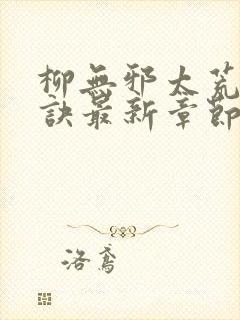 柳無邪太荒
訣最新章節
洛鳶